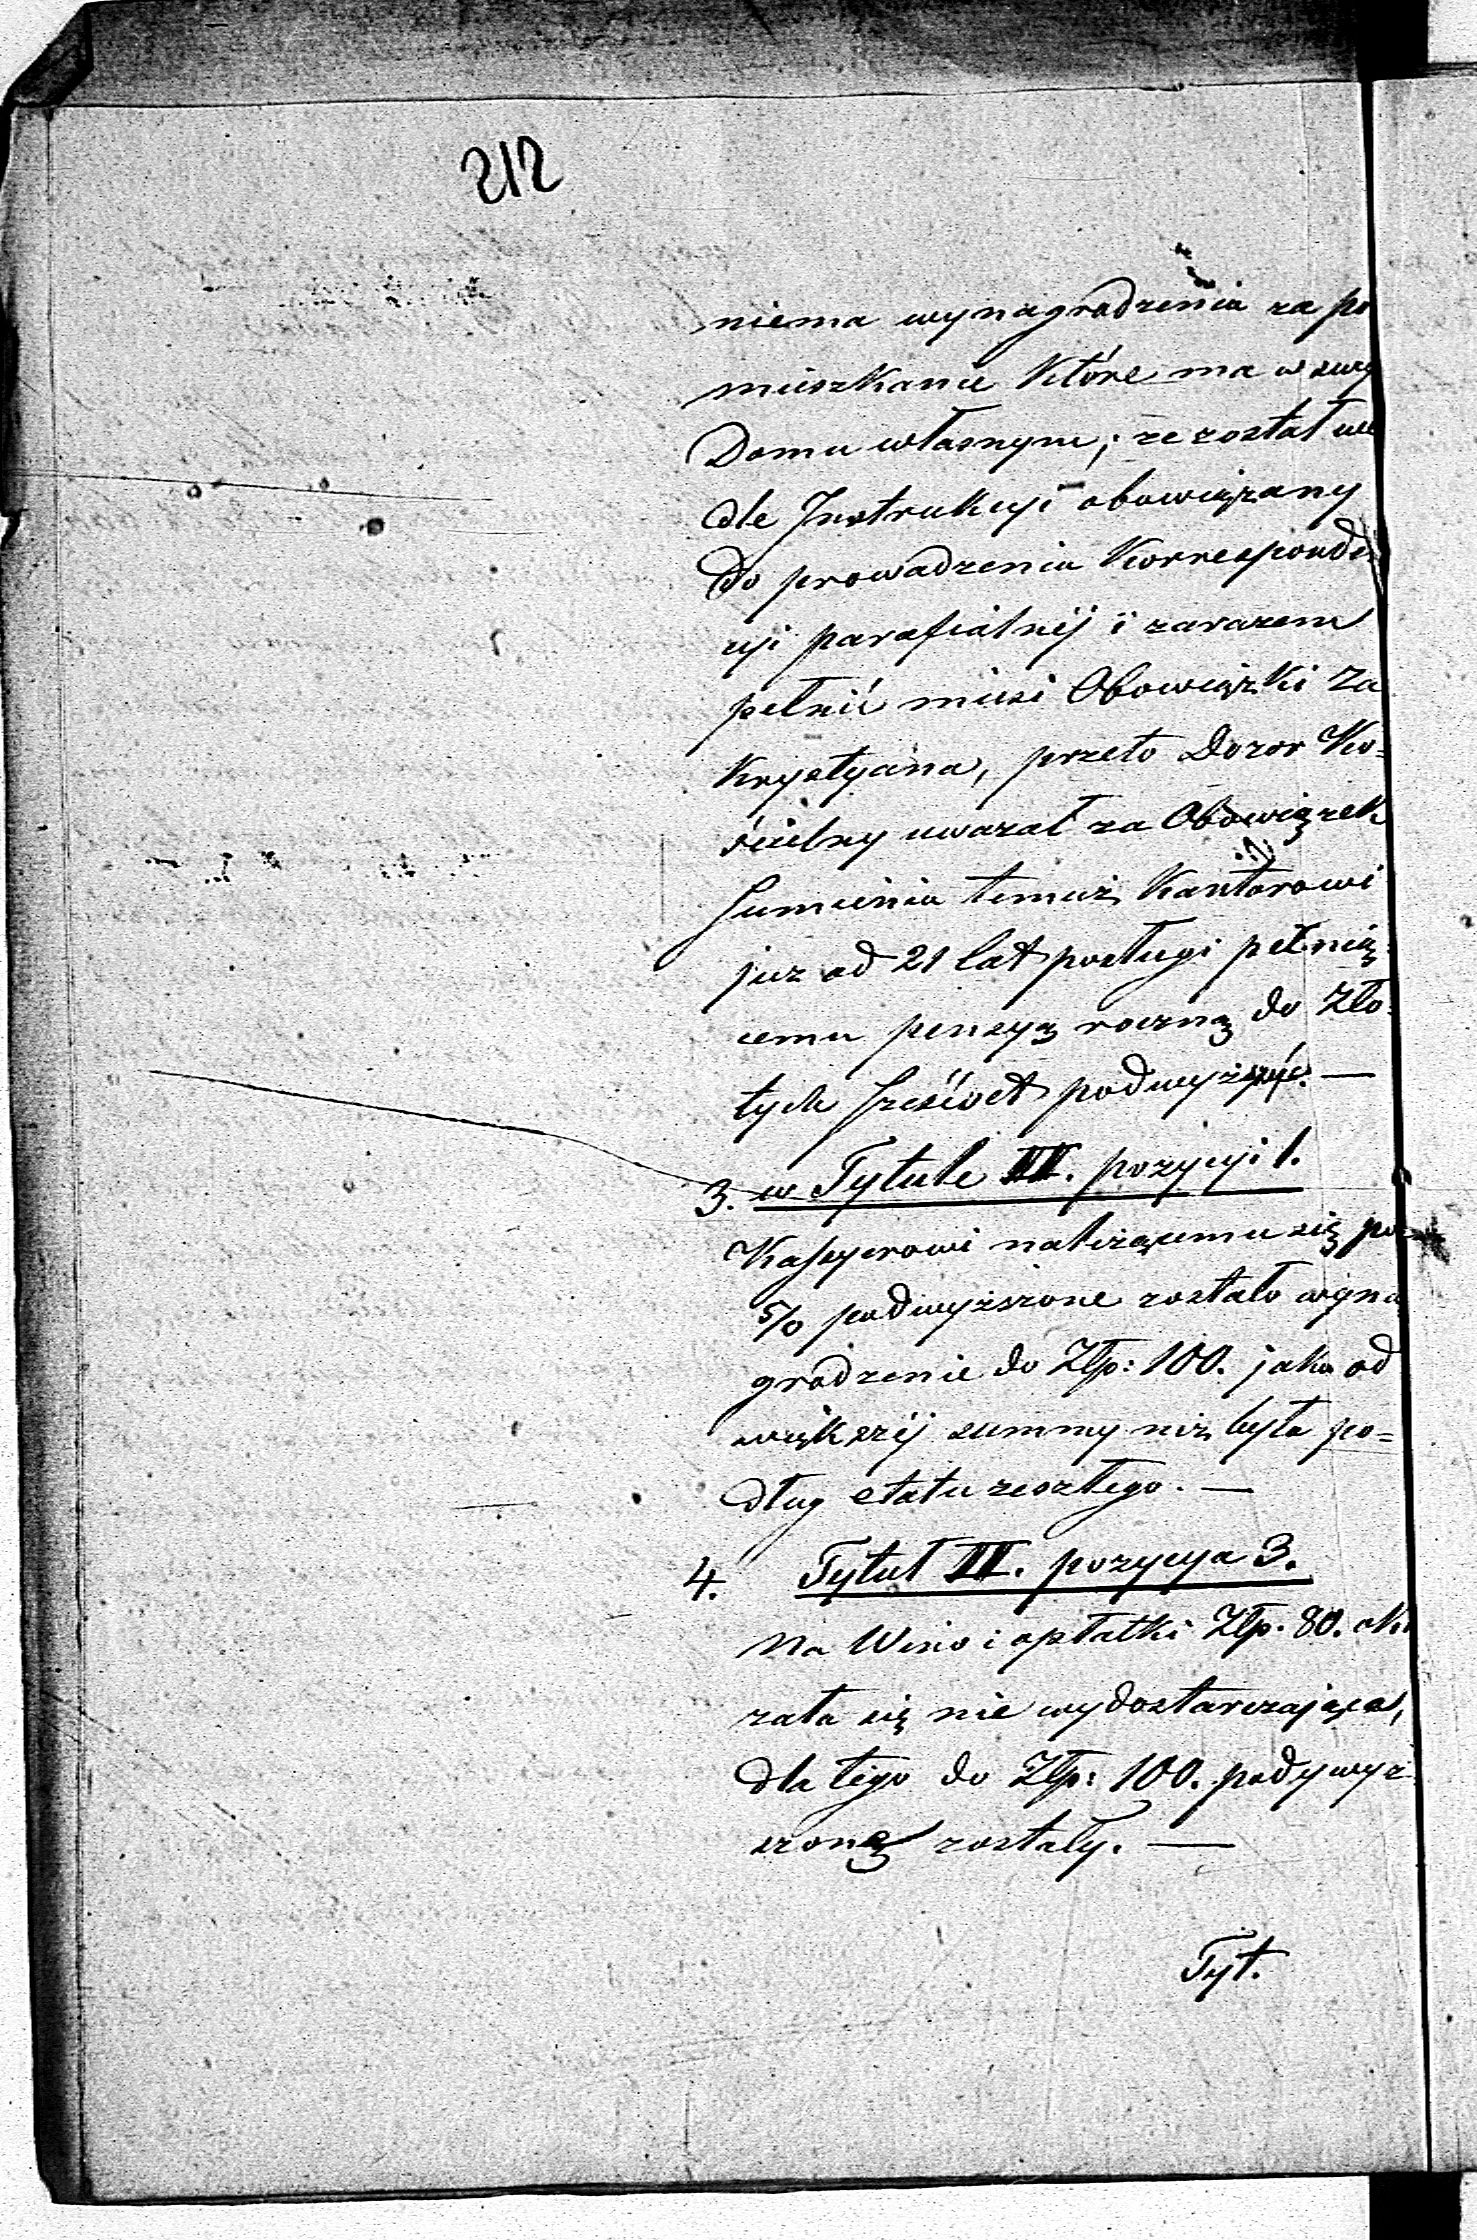 212
niema wynagrodzenia za po
mieszkanie które ma w swy
Domu własnym; ze został we
dle Instrukcyi obowiązany
do prowadzenia Korresponde
cyi parafialnéj i zarazem
pełnić musi Obowiązki Za
krystyana, przeto Dozor Ko=
ścielny uwazał za Obowiązek
Sumienia temuż Kantorowi
juz od 21 lat posługi pełnią=
cemu pensyą roczną do Zło=
tych sześćset podwyższyć. —
3. w Tytule III. pozycyi 1.
Kassyerowi należącemu się po
5/0 podwyższone zostało wyna
grodzenie do Złp: 100. jako od
większéj summy niż była po=
dług etatu zeszłego. —
4. Tytuł III. pozycya 3.
Na Wino i opłatki Złp. 80. oka
zała się nie wydostarczająca,
dla tego do Złp: 100. podywyż
szoną zostały. —
Tyt.